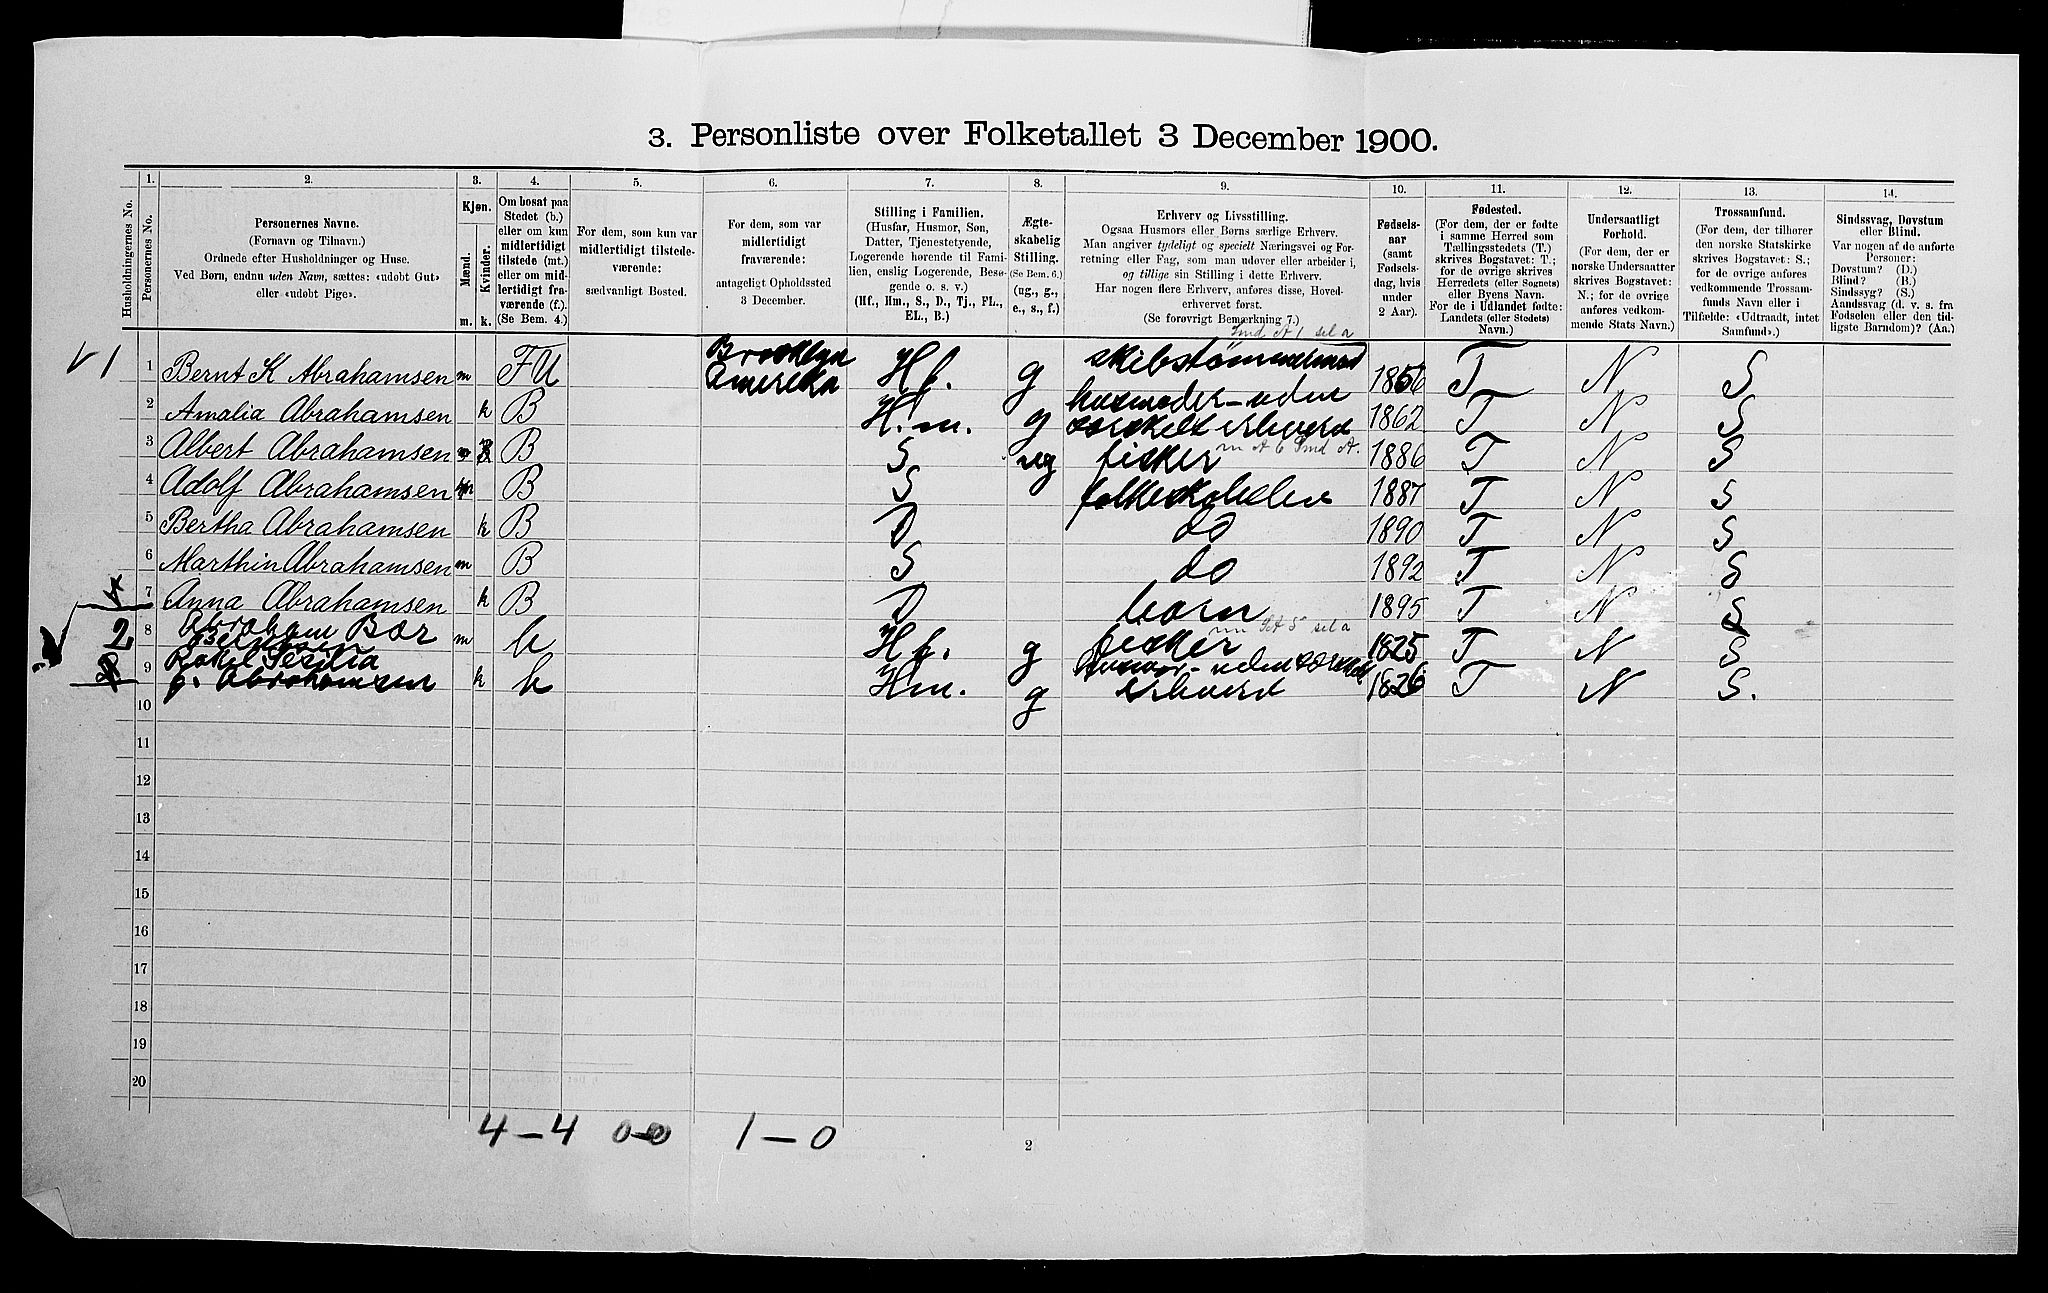 3. Personliste over Folketallet 3 December 1900.
Husholdningernes No.
1.
Personernes No.
2.
Personernes Navne.
(Fornavn og Tilnavn.)
Ordnede efter Husholdninger og Huse.
Ved Børn, endnu uden Navn, sættes: «udøbt Gut»
eller «udøbt Pige».
3.
Kjøn.
Mænd.
Kvinder.
m. k.
4.
Om bosat paa
Stedet (b.)
eller om kun
midlertidigt
tilstede (mt.)
eller om mid-
lertidigt fra-
værende (f.).
(Se Bem. 4.)
5.
For dem, som kun var
midlertidigt tilstede-
værende:
sædvanligt Bosted.
6.
For dem, som var
midlertidigt
fraværende:
antageligt Opholdssted
3 December.
7.
Stilling i Familien.
(Husfar, Husmor, Søn,
Datter, Tjenestetyende,
Logerende hørende til Fami-
lien, enslig Logerende, Besø-
gende o. s. v.)
(Hf., Hm., S., D., Tj., FL.,
EL., B.)
8.
Ægte-
skabelig
Stilling.
(Se Bem. 6.)
(ug., g.,
e., s., f.)
9.
Erhverv og Livsstilling.
Ogsaa Husmors eller Børns særlige Erhverv.
Man angiver tydeligt og specielt Næringsvei og For-
retning eller Fag, som man udøver eller arbeider i,
og tillige sin Stilling i dette Erhverv.
Har nogen flere Erhverv, anføres disse, Hoved-
erhvervet først.
(Se forøvrigt Bemerkning 7.)
10.
Fødsels-
aar
(samt
Fødsels-
dag, hvis
under
2 Aar).
11.
Fødested.
(For dem, der er fødte
i samme Herred som
Tællingsstedets (T.)
skrives Bogstavet: T.;
for de øvrige skrives
Herredets (eller Sognets)
eller Byens Navn.
For de i Udlandet fødte:
Landets (eller Stedets)
Navn.)
12.
Undersaatligt
Forhold.
(For dem, der er
norske Undersaatter
skrives Bogstavet:
N.; for de øvrige
anføres vedkom-
mende Stats Navn.)
13.
Trossamfund.
(For dem, der tilhører
den norske Statskirke
skrives Bogstavet: S.;
for de øvrige anføres
vedkommende Trossam-
funds Navn eller i
Tilfælde: «Udtraadt, intet
Samfund».)
14.
Sindssvag, Døvstum
eller Blind.
Var nogen af de anførte
Personer:
Døvstum? (D.)
Blind? (B.)
Sindssyg? (S.)
Aandssvag (d. v. s. fra
Fødselen eller den tid-
ligste Barndom)? (Aa.)
1 1 Bernt K Abrahamsen m FU Brooklyn Amerika Hf. g skibstømmermand 1856 T N S
2 Amalia Abrahamsen k B H.m. g husmoder - uden særskelt erhverd 1862 T N S
3 Albert Abrahamsen m B S ug fisker 1886 T N S
4 Adolf Abrahamsen m B S folkeskoleelev 1887 T N S
5 Bertha Abrahamsen k B D do 1890 T N S
6 Marthin Abrahamsen m B S do 1892 T N S
7 Anna Abrahamsen k B D barn 1895 T N S
2 8 Abraham Bær Berntsen m b Hf. g fisker 1825 T N S
9 Rakel Sesilia g. Abrahamsen k b Hm. g erhverd 1826 T N S.
10
11
12
13
14
15
16
17
18
19
20
4 – 4 0-0 1 – 0
2